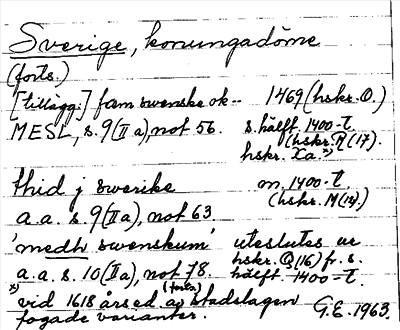 Sverige, konungadöme
(forts.)
[tillägg:] fam swenske ok-- 1469 (hskr. O.)
MESL, s. 9 (II a), not 56. s. hälft. 1400-t.
(hskr. R (17).
hskr. La. *)
thid j swerike m. 1400-t.
(hskr. M (14).)
a.a. s. 9 (II a), not 63.
'medh swenskum' uteslutes av
hskr. Q (16) fr. s.
a.a. s. 10 (II a), not 78. hälft. 1400-t.
*) vid 1618 års ed. av (forts.) stadslagen
fogade varianter. G.E. 1963.